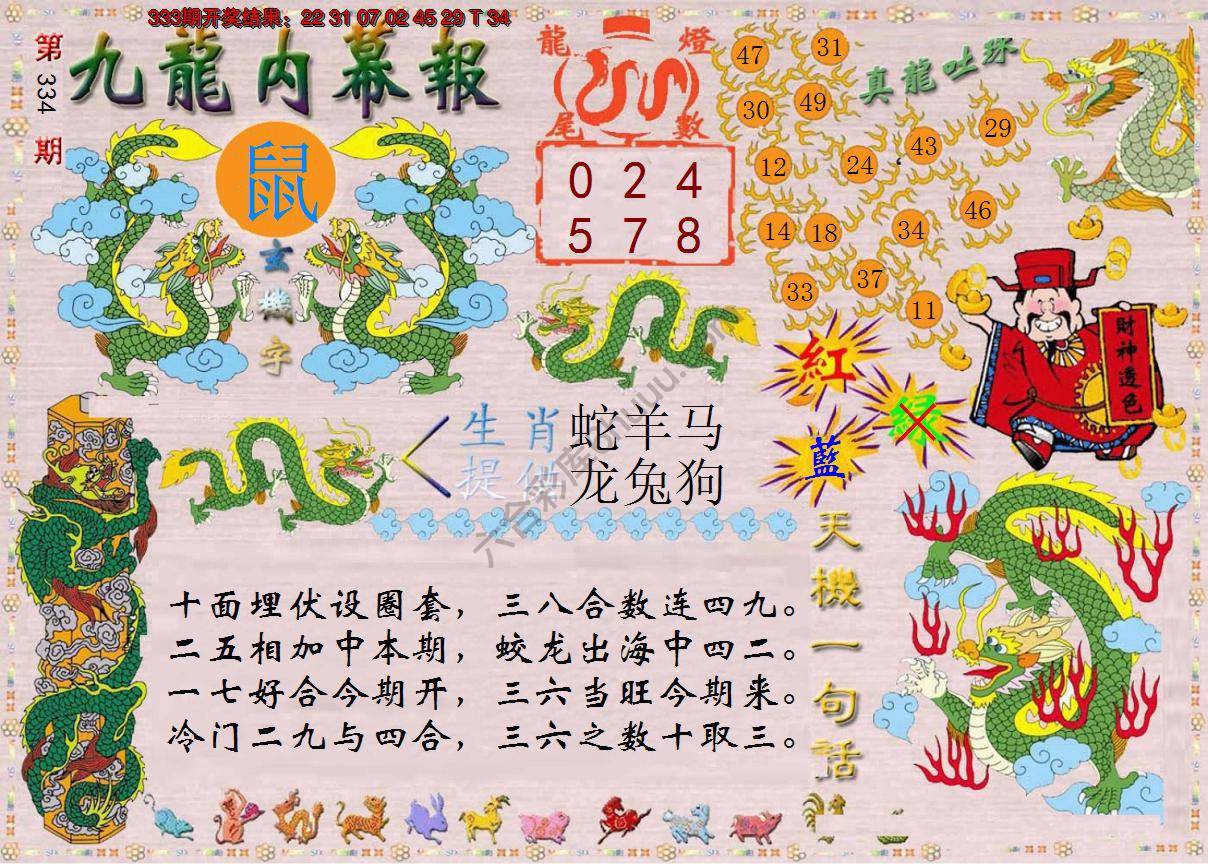 333期开奖结果：22 31 07 02 45 29 T 34
第334期
九龍内幕報
鼠
玄機字
龍燈
尾數
0 2 4
5 7 8
真龍吐珠
47 31
30 49
43 29
12 24
46
14 18 34
37
33 11
財神透色
紅
绿
藍
生肖
提供
蛇羊马
龙兔狗
天機一句話
十面埋伏设圈套，三八合数连四九。
二五相加中本期，蛟龙出海中四二。
一七好合今期开，三六当旺今期来。
冷门二九与四合，三六之数十取三。